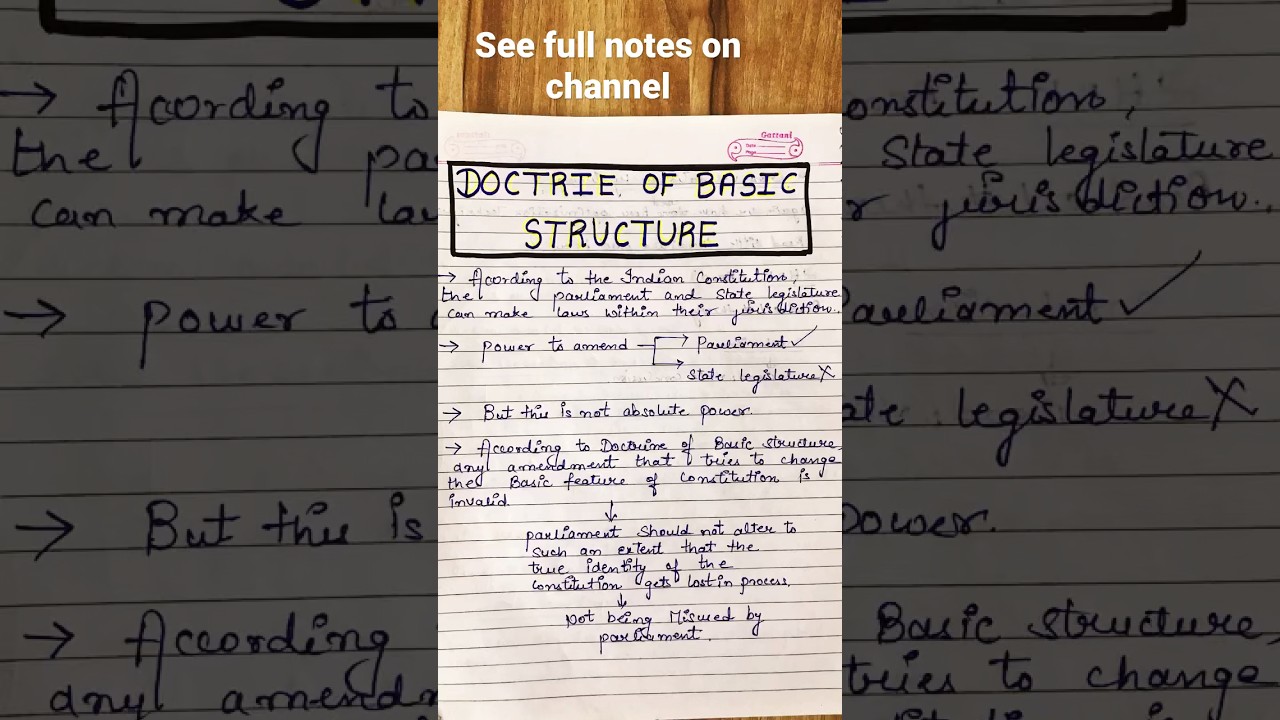 See full notes on
channel
Gattani
DOCTRIE OF BASIC
STRUCTURE
→ Acording to the Indian Constitution,
the parliament and State legislature
can make laws within their jurisdiction.
→ power to amend → Parliament ✓
→ State legislature X
→ But this is not absolute power.
→ According to Doctrine of Basic structure
any amendment that tries to change
the Basic feature of Constitution is
invalid.
↓
parliament should not alter to
such an extent that the
true identity of the
constitution gets lost in process.
↓
not being Misused by
parliament.